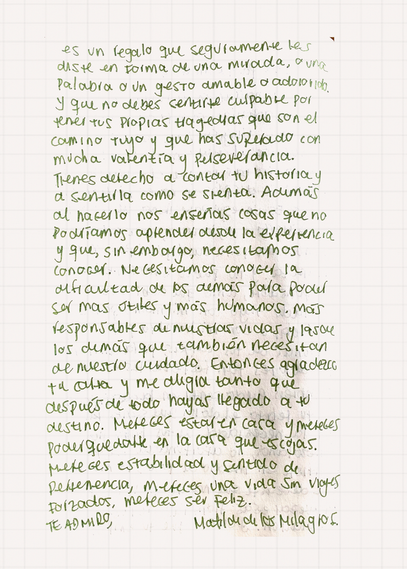 es un regalo que seguramente les
diste en forma de una mirada, o una
palabra o un gesto amable o adolorido.
Y que no debes sentirte culpable por
tener tus propias tragedias que son el
camino tuyo y que has superado con
mucha valentía y perseverancia.
Tienes derecho a contar tu historia y
a sentirla como se sienta. Además
al hacerlo nos enseñas cosas que no
podríamos aprender desde la experiencia
y que, sin embargo, necesitamos
conocer. Necesitamos conocer la
dificultad de los demás para poder
ser mas útiles y más humanos. Más
responsables de nuestras vidas y las de
los demás que también necesitan
de nuestro cuidado. Entonces agradezco
tu carta y me alegra tanto que
después de todo hayas llegado a tu
destino. Mereces estar en casa y mereces
poder quedarte en la casa que escojas.
Mereces estabilidad y sentido de
pertenencia, mereces una vida sin viajes
forzados, mereces ser feliz.
TE ADMIRO, Matilda de los Milagros.